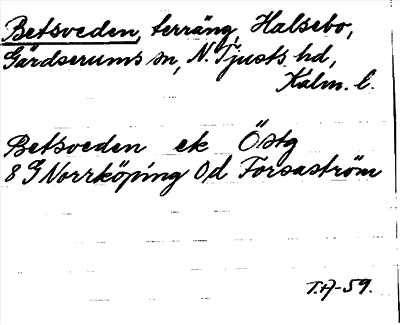 Betsveden, terräng, Halsebo,
Gärdserums sn, N. Tjusts hd,
Kalm. l.
Betsveden ek Östg
8 G Norrköping 0d Forsaström
T.A-59.